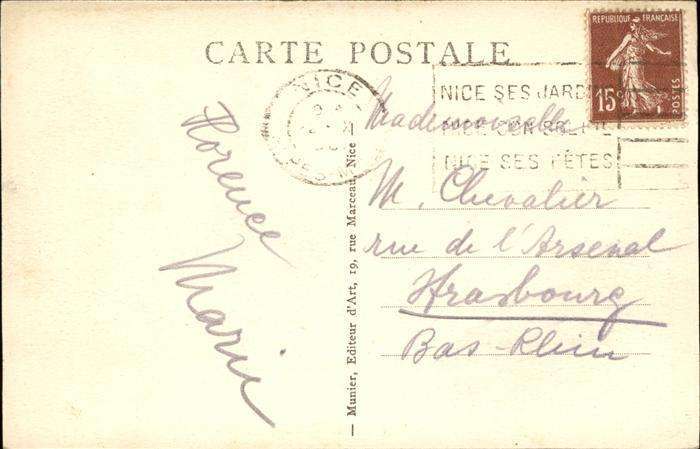 CARTE POSTALE
REPUBLIQUE FRANÇAISE
15c
POSTES
NICE
NICE SES JARDI
NICE SES FÊTES
Mademoiselle
M. Chevalier
rue de l'Arsenal
Strasbourg
Bas-Rhin
Florence
Marie
— Munier, Editeur d'Art, 19, rue Marceau, Nice —